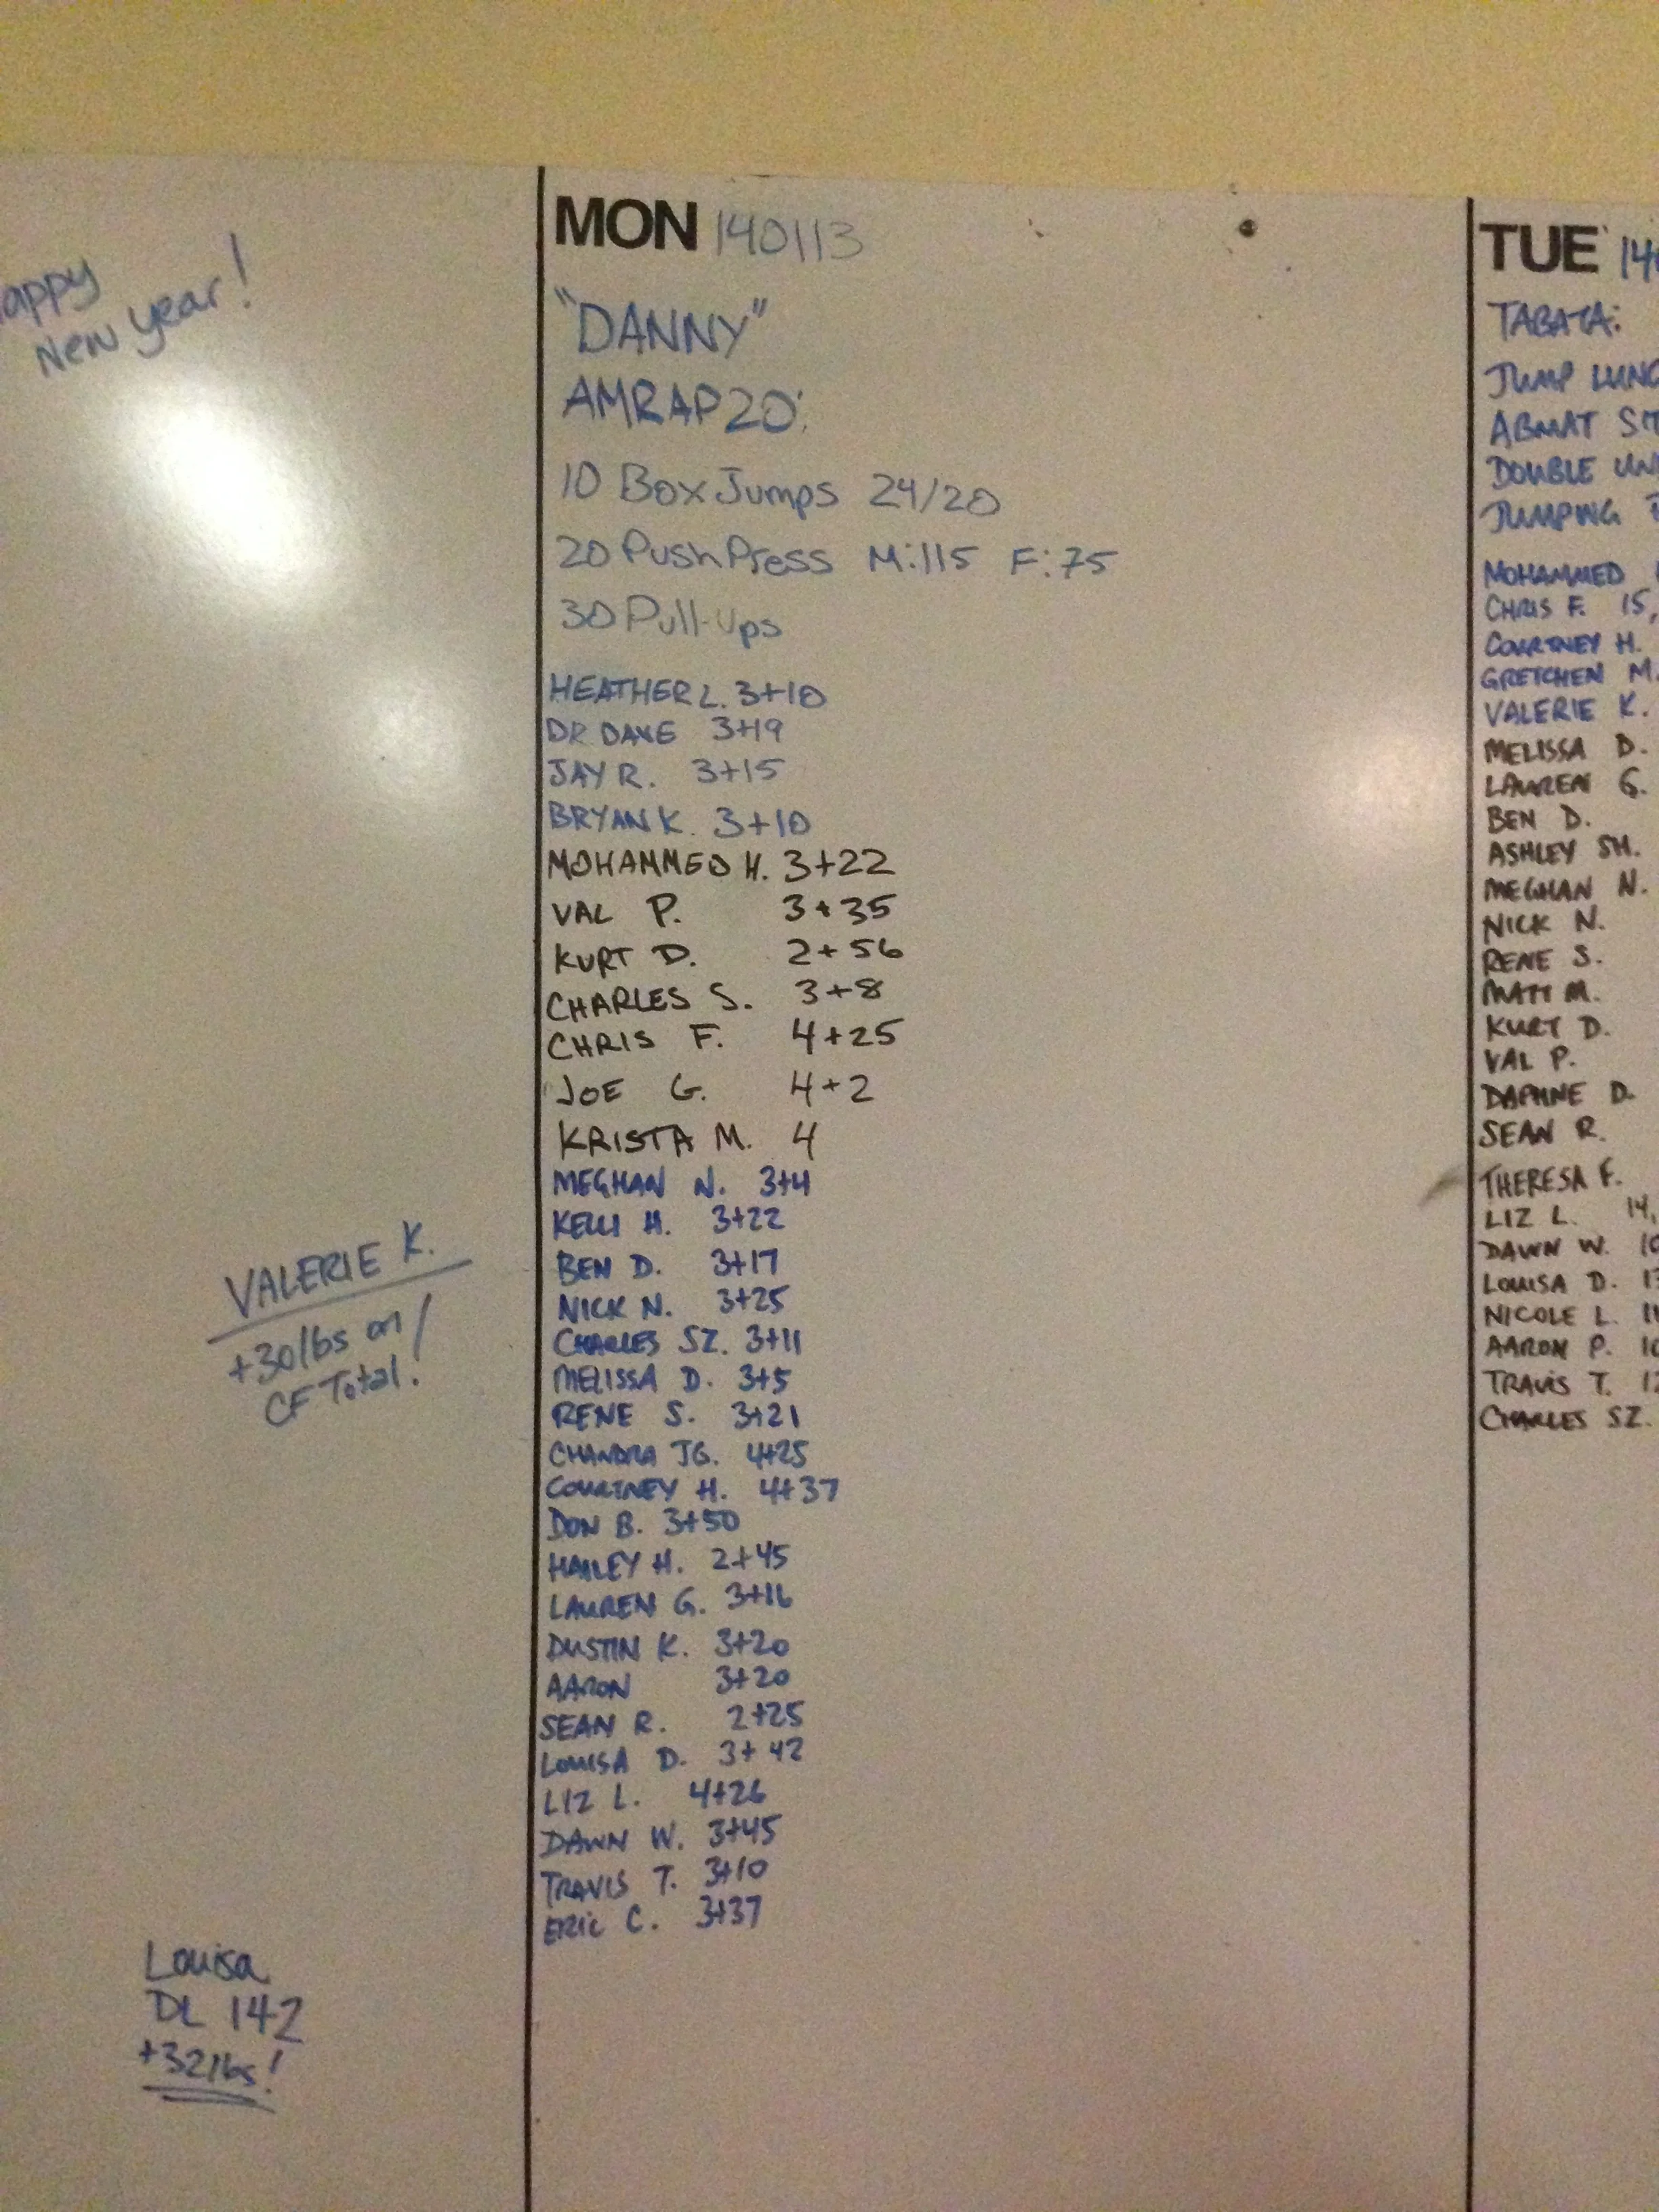 appy
New year!
VALERIE K.
+30lbs on
CF Total!
Louisa
DL 142
+32lbs!
MON 140113
"DANNY"
AMRAP 20:
10 Box Jumps 24/20
20 Push Press M:115 F:75
30 Pull-Ups
HEATHER L. 3+10
DR DAVE 3+19
JAY R. 3+15
BRYAN K. 3+10
MOHAMMED H. 3+22
VAL P. 3+35
KURT D. 2+56
CHARLES S. 3+8
CHRIS F. 4+25
JOE G. 4+2
KRISTA M. 4
MEGHAN N. 3+4
KELLI H. 3+22
BEN D. 3+17
NICK N. 3+25
CHARLES SZ. 3+11
MELISSA D. 3+5
RENE S. 3+21
CHANDRA JG. 4+25
COURTNEY H. 4+37
DON B. 3+50
HAILEY H. 2+45
LAUREN G. 3+16
DUSTIN K. 3+20
AARON 3+20
SEAN R. 2+25
LOUISA D. 3+42
LIZ L. 4+26
DAWN W. 3+45
TRAVIS T. 3+10
ERIC C. 3+37
TUE 14
TABATA:
JUMP LUNG
ABMAT SIT
DOUBLE UN
JUMPING
MOHAMMED
CHRIS F. 15,
COURTNEY H.
GRETCHEN M.
VALERIE K.
MELISSA D.
LAUREN G.
BEN D.
ASHLEY SH.
MEGHAN N.
NICK N.
RENE S.
MATT M.
KURT D.
VAL P.
DAPHNE D.
SEAN R.
THERESA F.
LIZ L. 14,
DAWN W. 10
LOUISA D. 13
NICOLE L. 11
AARON P. 10
TRAVIS T. 12
CHARLES SZ.